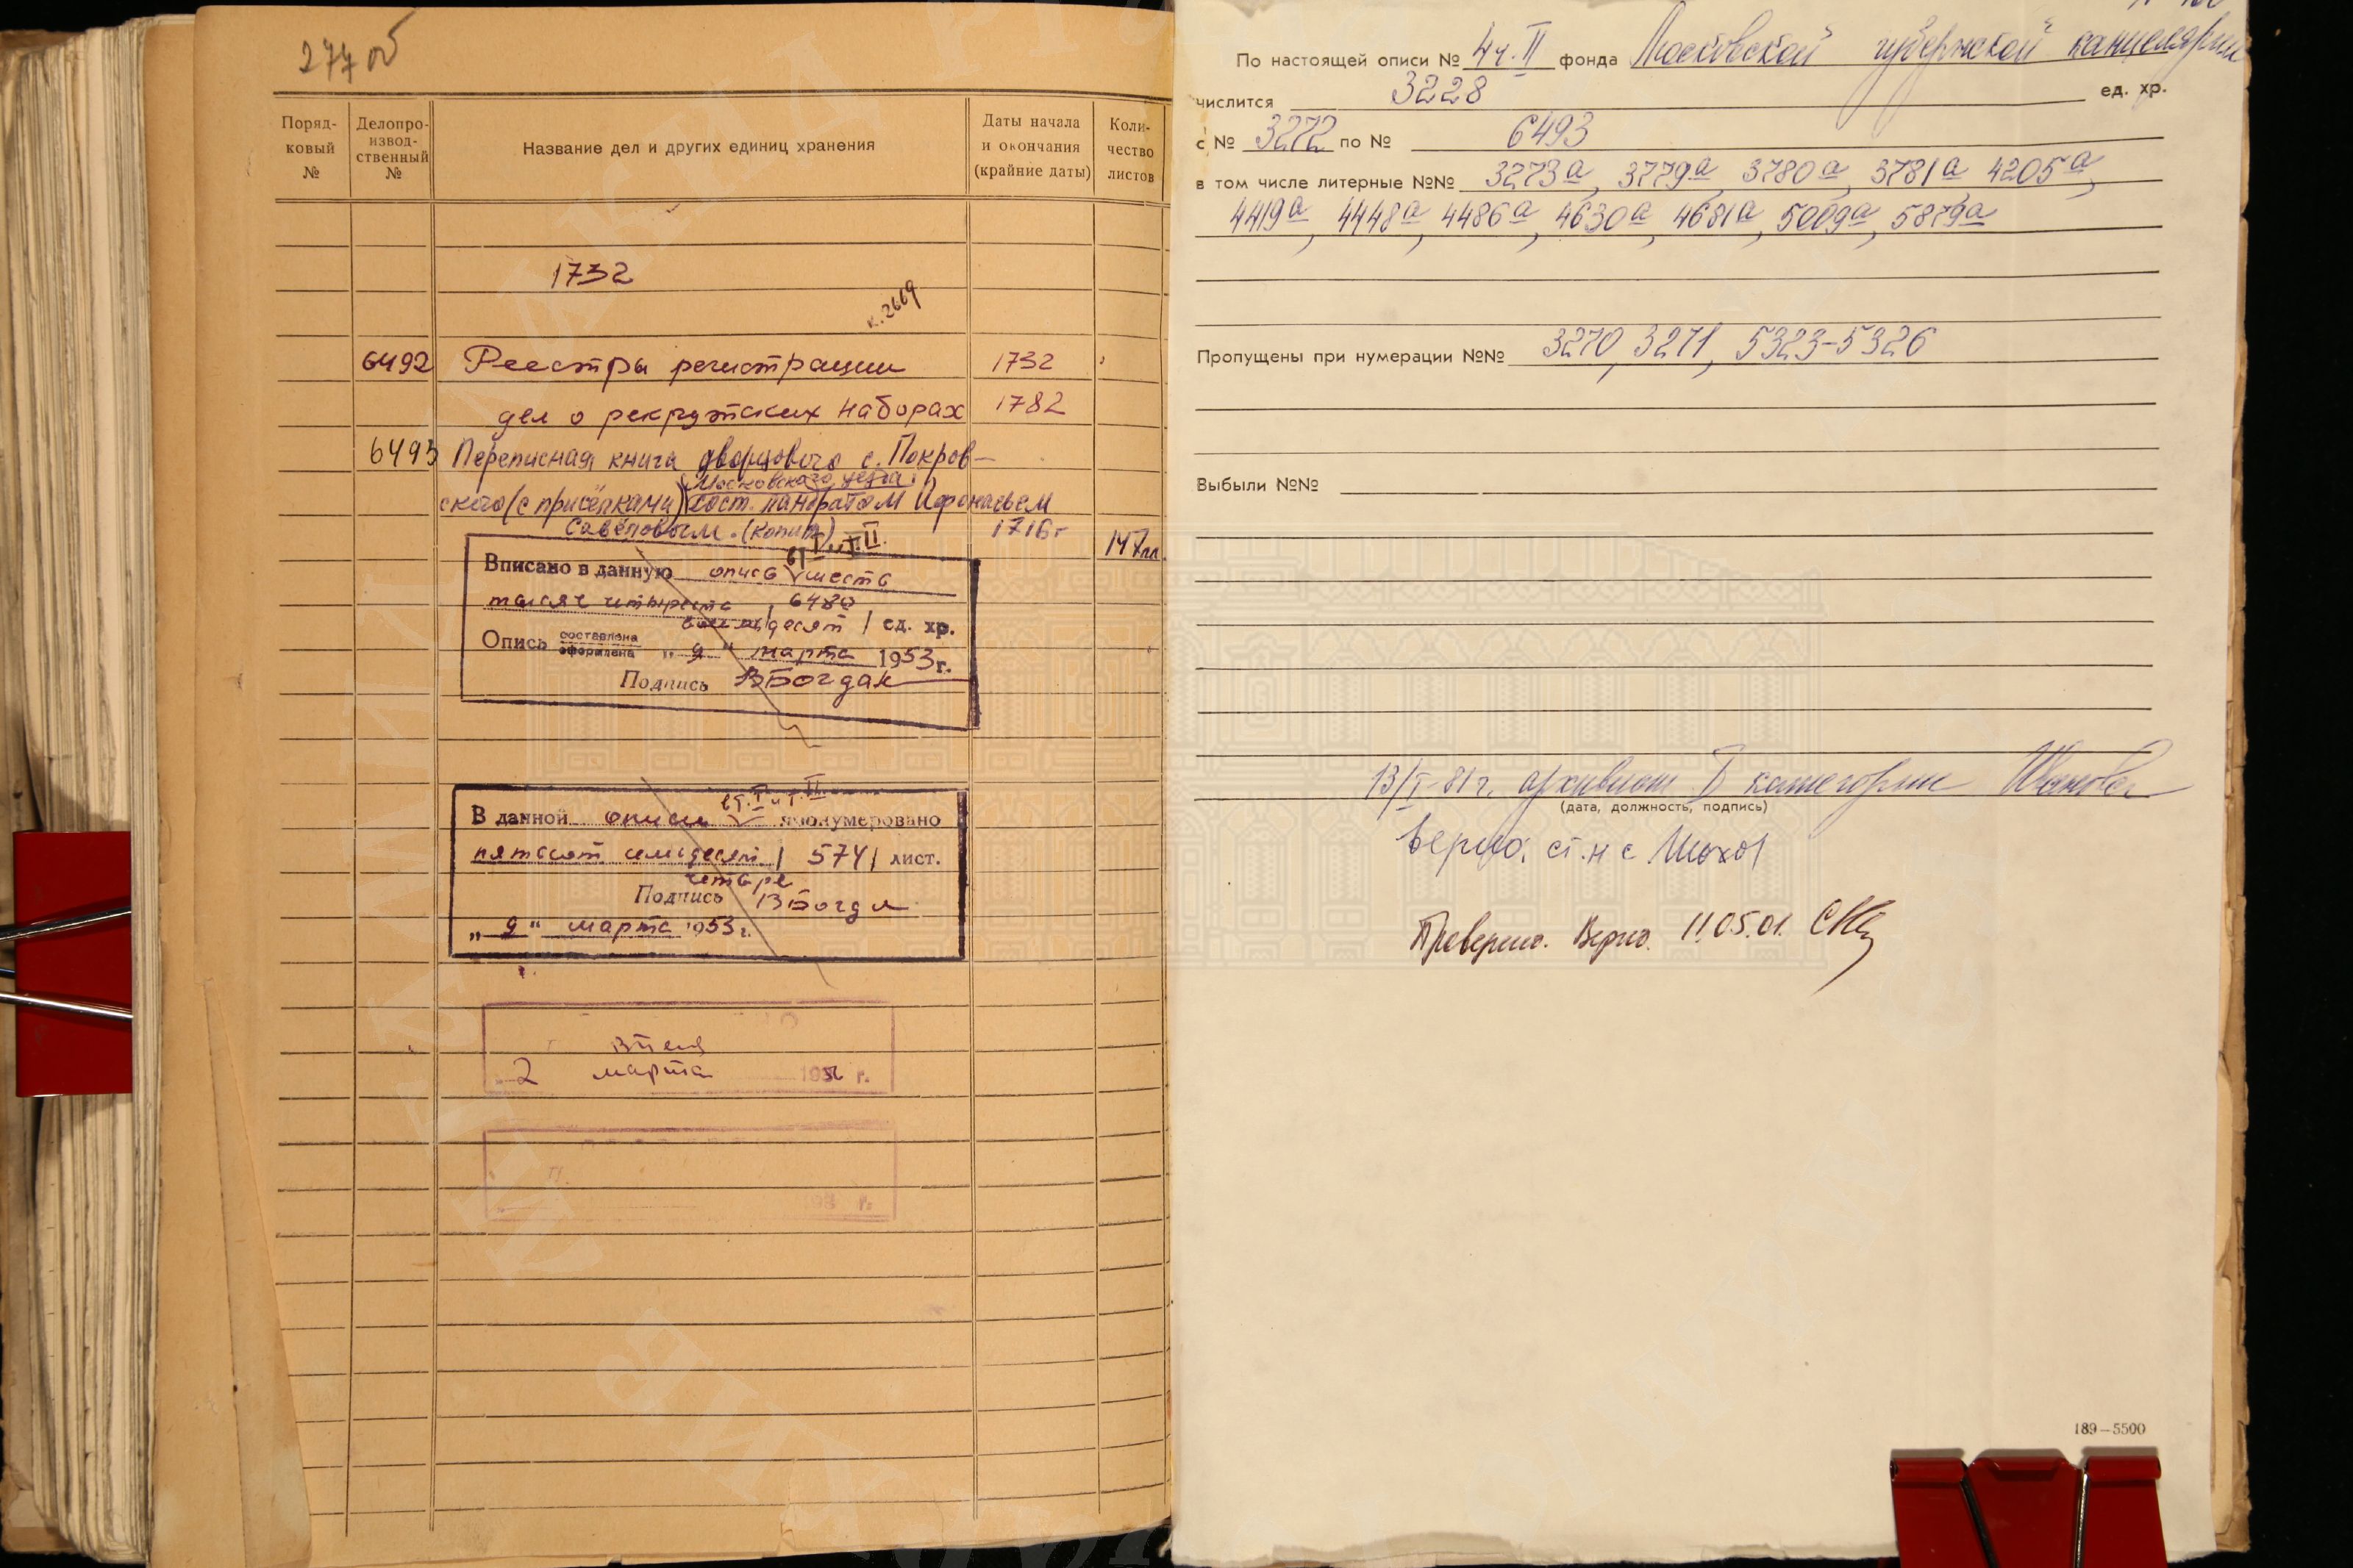 277 об
Поряд-
ковый
№
Делопро-
извод-
ственный
№
Название дел и других единиц хранения
Даты начала
и окончания
(крайние даты)
Коли-
чество
листов
1732
к. 2669
6492 Реестры регистрации 1732
дел о рекрутских наборах 1782
6493 Переписная книга дворцового с. Покров-
Московского уезда
ского (с присёлками) сост. Панкратом Афонасьем
Савёловым. (копия) 1716 г 147 лл.
в т. I и т. II.
Вписано в данную опись шесть
тысяч четыреста / 6480
восемьдесят / ед. хр.
Опись составлена
оформлена „9“ марта 1953 г.
Подпись ВБогдан
в т. I и т. II
В данной описи пронумеровано
пятьсот семьдесят / 574 / лист.
четыре
Подпись
„9“ марта 1953 г.
2 марта г.
По настоящей описи № 4 ч. II фонда Московской губернской канцелярии
числится 3228 ед. хр.
с № 3272 по № 6493
в том числе литерные №№ 3273а, 3779а, 3780а, 3781а 4205а,
4419а, 4448а, 4486а, 4630а, 4681а, 5009а, 5879а
Пропущены при нумерации №№ 3270, 3271, 5323-5326
Выбыли №№
13/I-81 г. архивист II категории Иванова
(дата, должность, подпись)
Верно: ст. н с
Проверено. Верно. 11.05.01.
189—5500